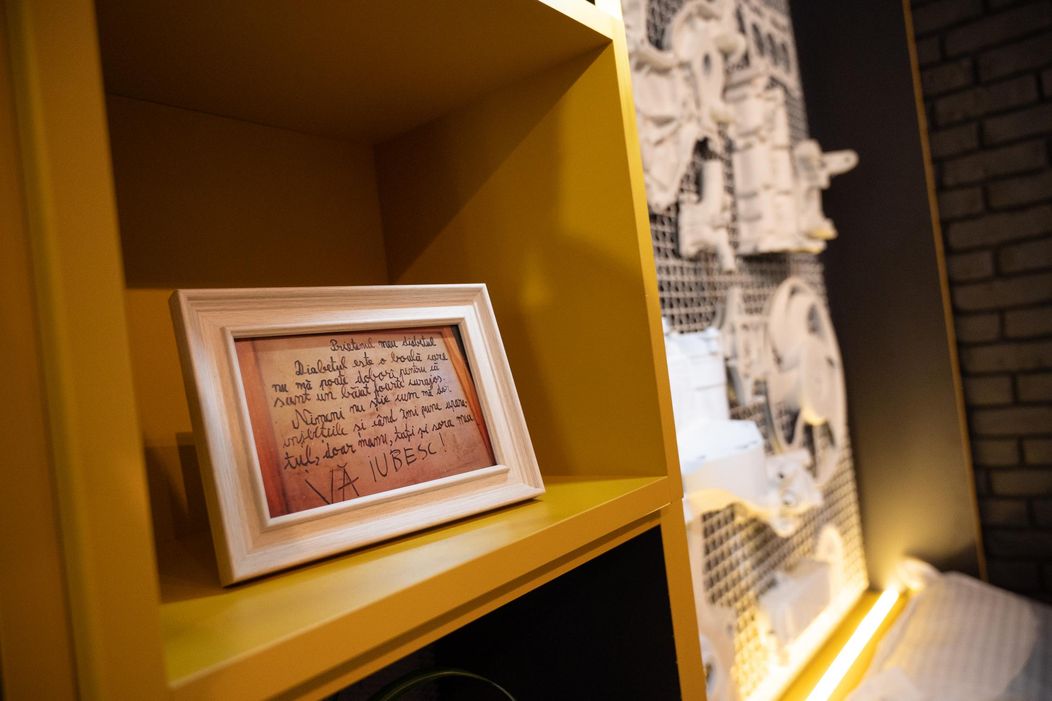 Prietenul meu diabetul
Diabetul este o boală care
nu mă poate doborî pentru că
sunt un băiat foarte curajos.
Nimeni nu știe cum mă dor
înțepăturile și când îmi pune
tul, doar mami, tati și sora mea
VĂ IUBESC!